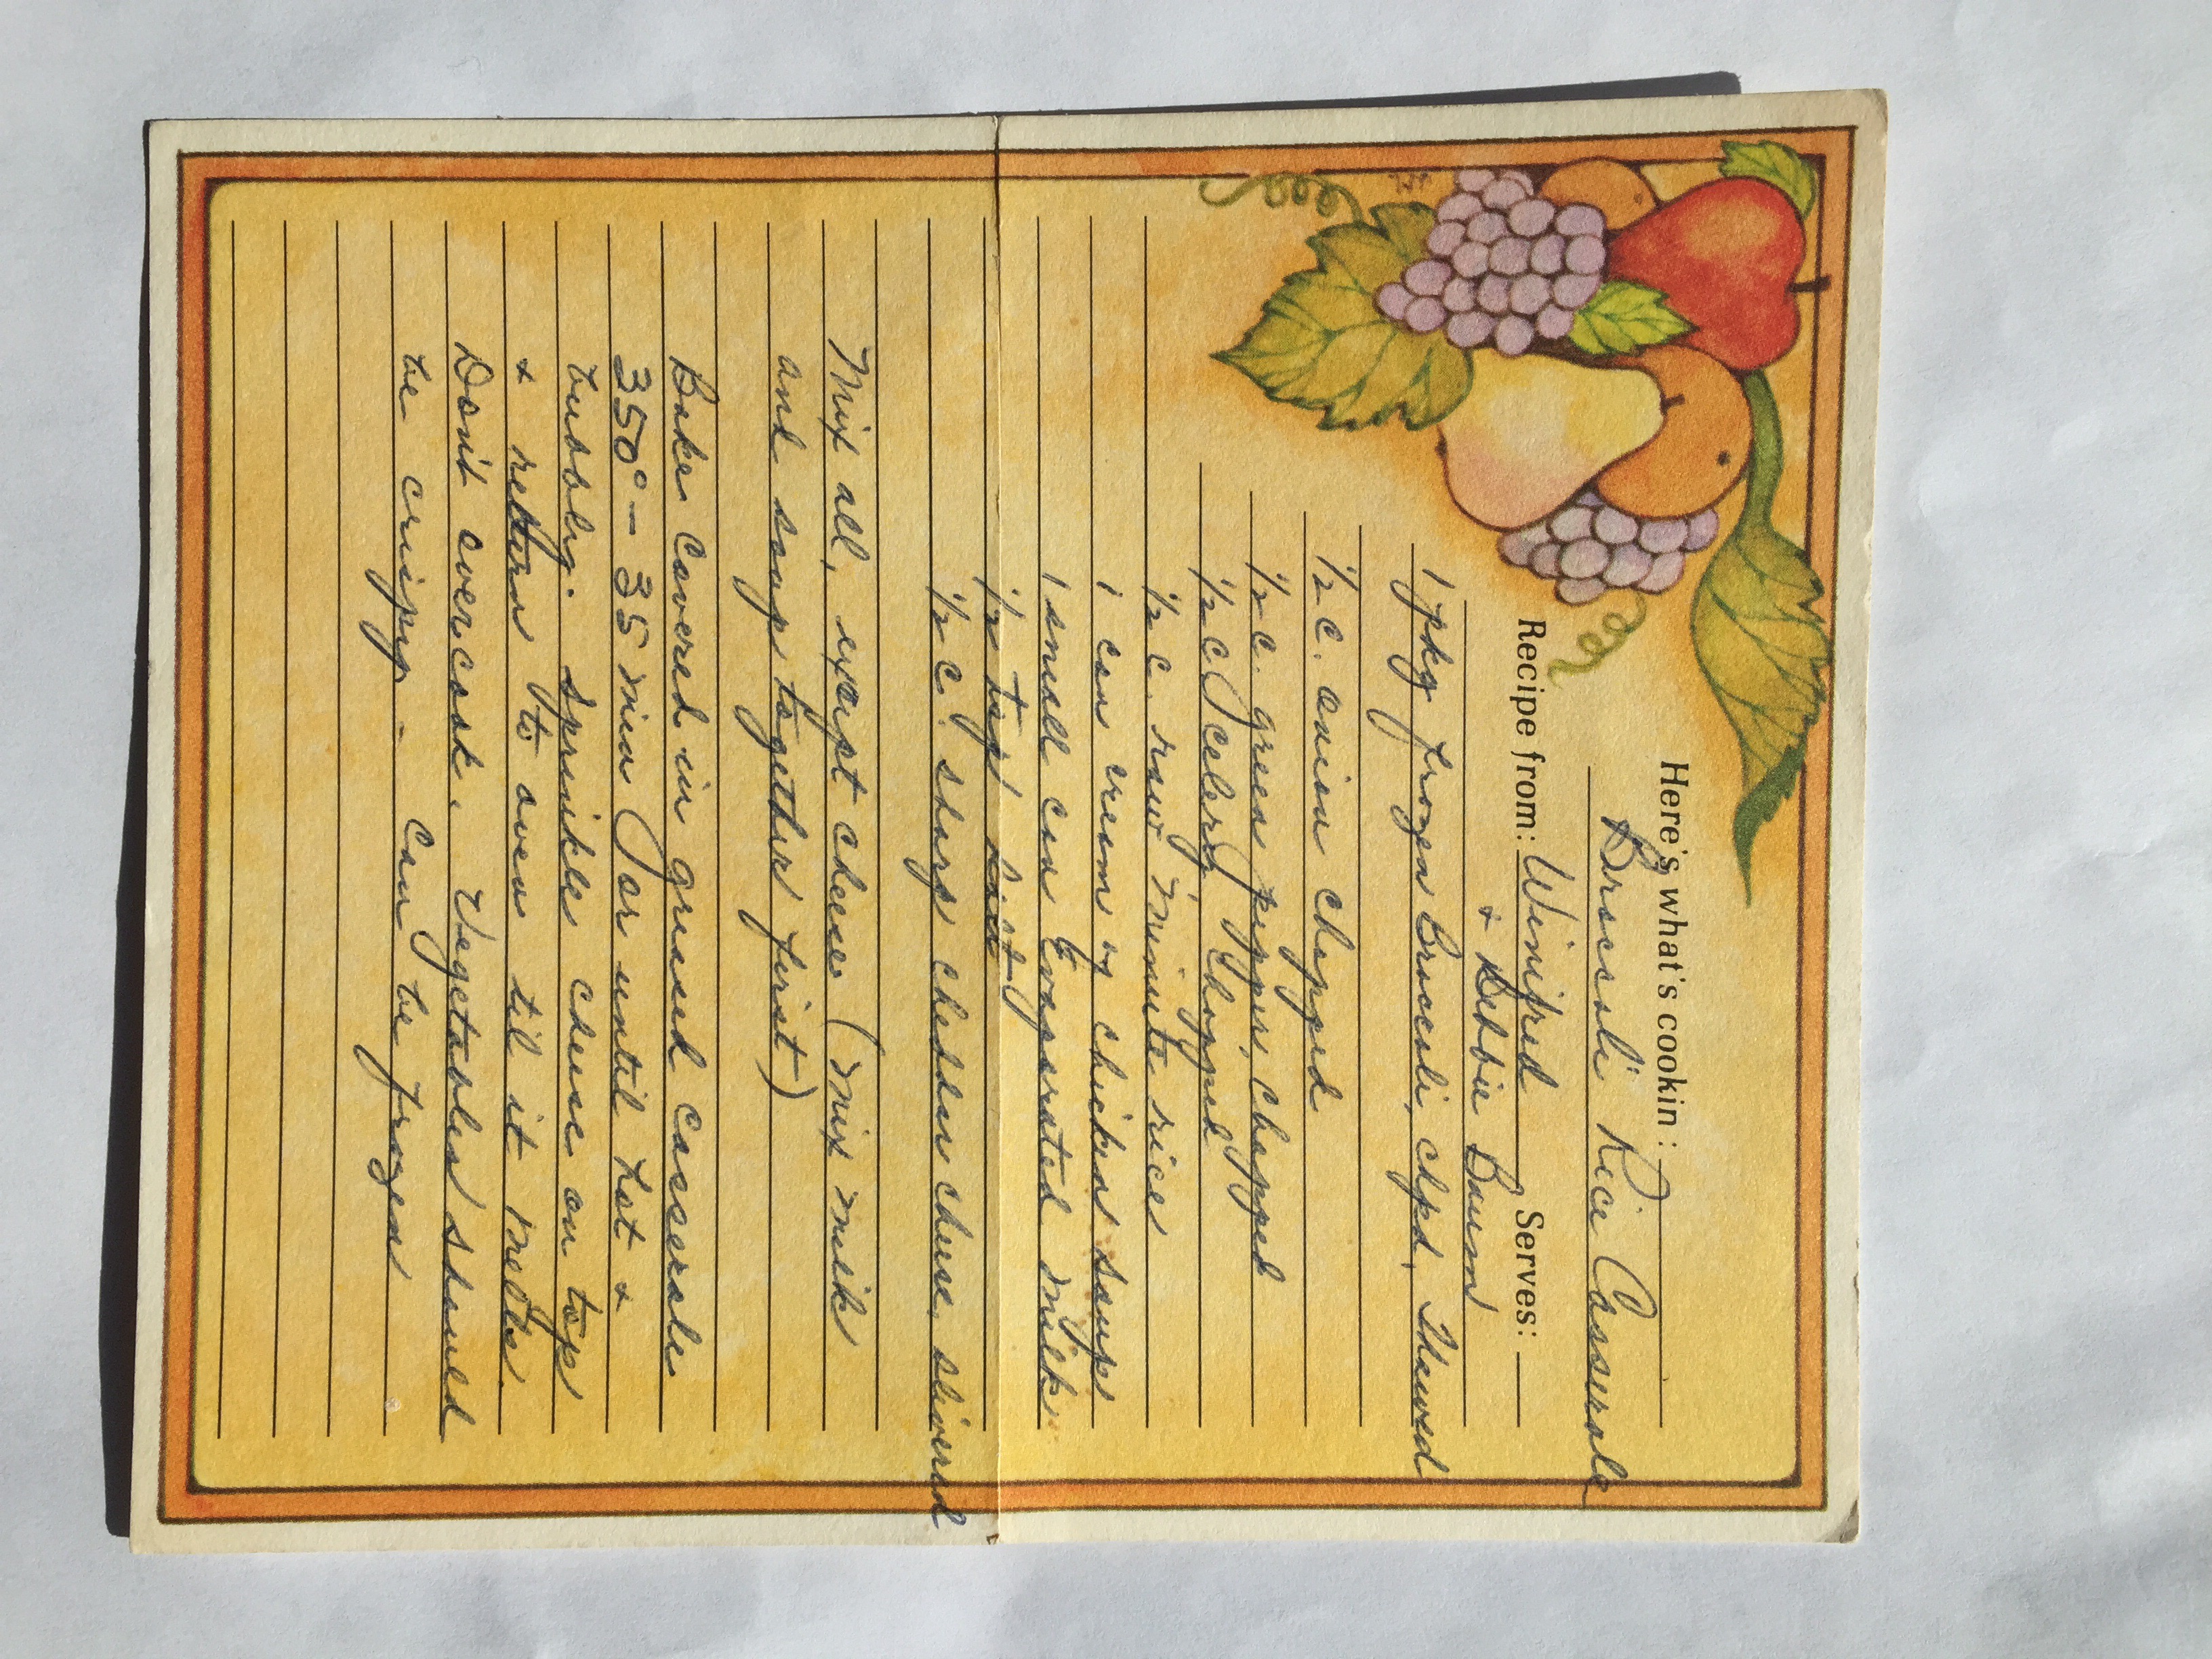 Here's what's cookin:
Broccoli Rice Casserole
Recipe from: Winifred Serves:
+ Debbie Baum
1 pkg frozen Broccoli, chpd, thawed
1/2 c. onion chopped
1/2 c. green pepper, chopped
1/2 c celery, chopped
1/2 c. raw minute rice
1 can cream of chicken soup
1 small can Evaporated milk
1/2 tsp salt
1/2 c. sharp cheddar cheese, slivered
Mix all, except cheese (mix milk
and soup together first)
Bake Covered in greased casserole
350° - 35 min or until hot +
bubbly. Sprinkle cheese on top
+ return to oven til it melts.
Don't overcook. Vegetables should
be crispy - Can be frozen